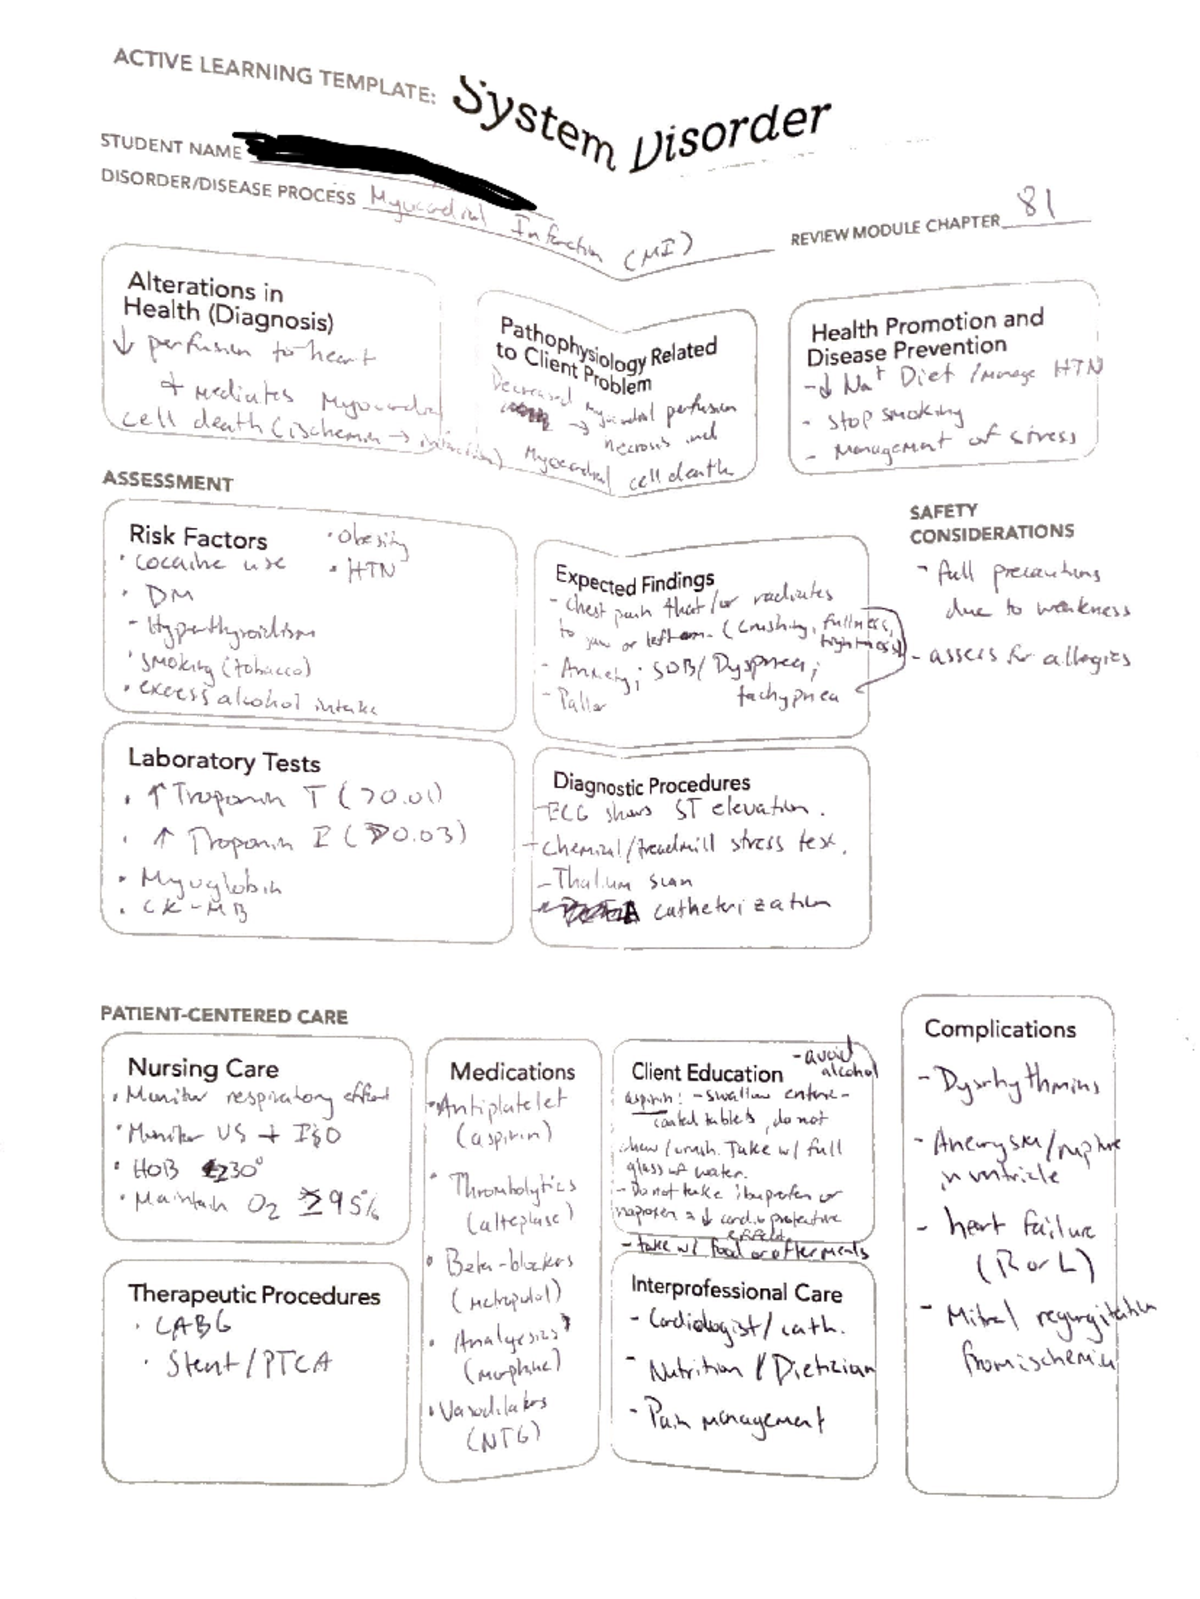 ACTIVE LEARNING TEMPLATE: System Disorder
STUDENT NAME
DISORDER/DISEASE PROCESS Myocardial Infarction (MI)
REVIEW MODULE CHAPTER 81
Alterations in
Health (Diagnosis)
↓ perfusion to heart
+ mediates Myocardial
cell death (ischemia → infarction)
Pathophysiology Related
to Client Problem
Decreased Myocardial perfusion
→ necrosis and
Myocardial cell death
Health Promotion and
Disease Prevention
- ↓ Na+ Diet / Manage HTN
- Stop smoking
- Management of stress
ASSESSMENT
Risk Factors
• cocaine use
• DM
- Hyperthyroidism
• smoking (tobacco)
• excess alcohol intake
• obesity
• HTN
Expected Findings
- Chest pain that /or radiates
to jaw or left arm. (Crushing, fullness,
tightness)
- Anxiety; SOB/ Dyspnea;
tachypnea
- Pallor
SAFETY
CONSIDERATIONS
- fall precautions
due to weakness
- assess for allergies
Laboratory Tests
• ↑ Troponin T (>0.01)
• ↑ Troponin I (>0.03)
• Myoglobin
• CK-MB
Diagnostic Procedures
- ECG shows ST elevation.
- Chemical/treadmill stress test.
- Thallium scan
- catheterization
PATIENT-CENTERED CARE
Nursing Care
• Monitor respiratory effort
• Monitor VS + I&O
• HOB ≥30°
• Maintain O2 ≥95%
Therapeutic Procedures
• CABG
• Stent/PTCA
Medications
• Antiplatelet
(aspirin)
• Thrombolytics
(alteplase)
• Beta-blockers
(metoprolol)
• Analgesics
(morphine)
• Vasodilators
(NTG)
Client Education
- avoid
alcohol
aspirin: - swallow enteric-
coated tablets, do not
chew/crush. Take w/ full
glass of water.
- Do not take ibuprofen or
naproxen ↓ cardioprotective
effects
- take w/ food or after meals
Interprofessional Care
- Cardiologist/cath.
- Nutrition / Dietician
- Pain management
Complications
- Dysrhythmias
- Aneurysm/rupture
in ventricle
- heart failure
(R or L)
- Mitral regurgitation
from ischemia